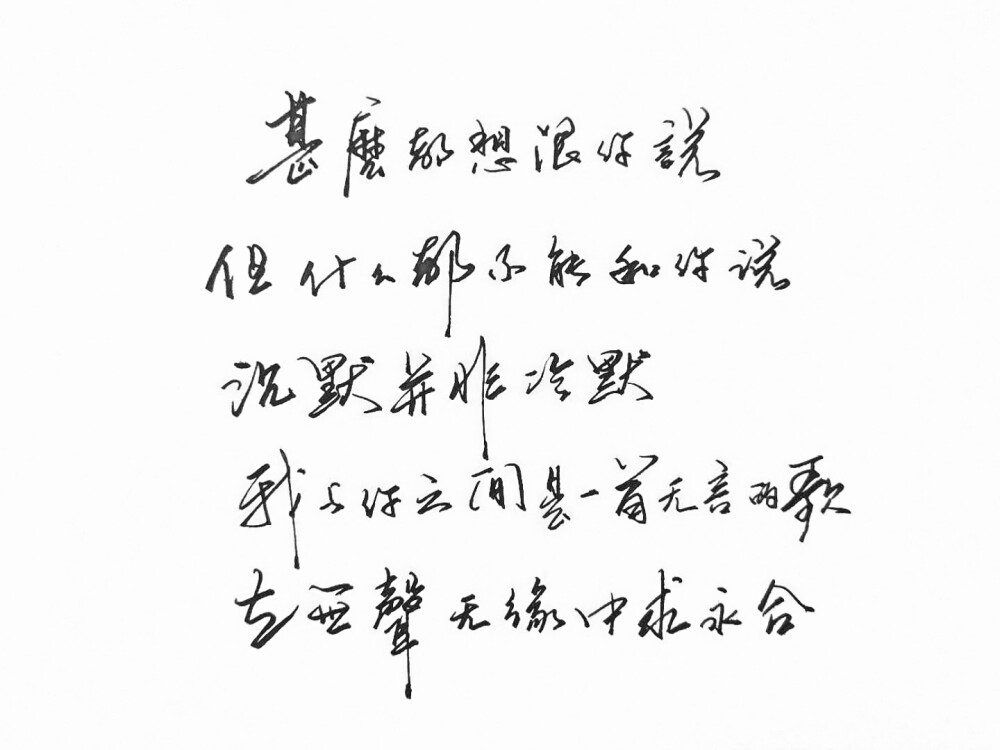 甚麼都想跟你說
但什么都不能和你说
沉默并非冷默
我与你之间是一首无言的歌
在无聲无缘中求永合